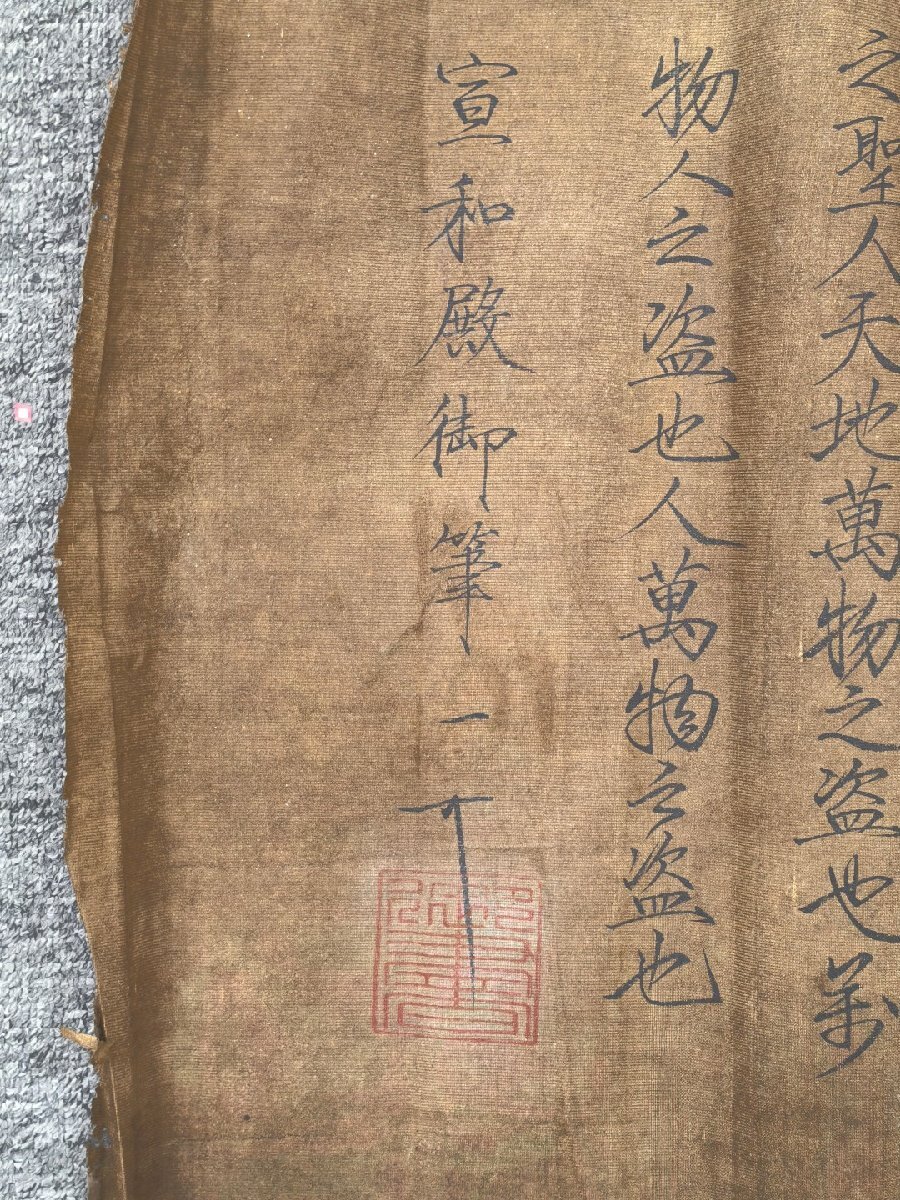 之聖人天地萬物之盜也万
物人之盜也人萬物之盜也
宣和殿御筆